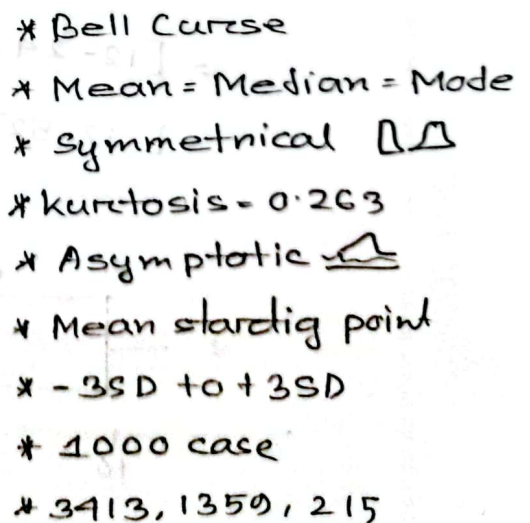 * Bell Curse
* Mean = Median = Mode
* Symmetrical
* kurtosis = 0.263
* Asymptotic
* Mean stardig point
* - 3SD to + 3SD
* 1000 case
* 3413, 1359, 215